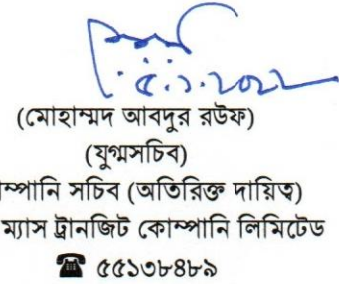 ৫.১.২০২২
(মোহাম্মদ আবদুর রউফ)
(যুগ্মসচিব)
ম্পানি সচিব (অতিরিক্ত দায়িত্ব)
ম্যাস ট্রানজিট কোম্পানি লিমিটেড
☎ ৫৫১৩৮৪৮৯